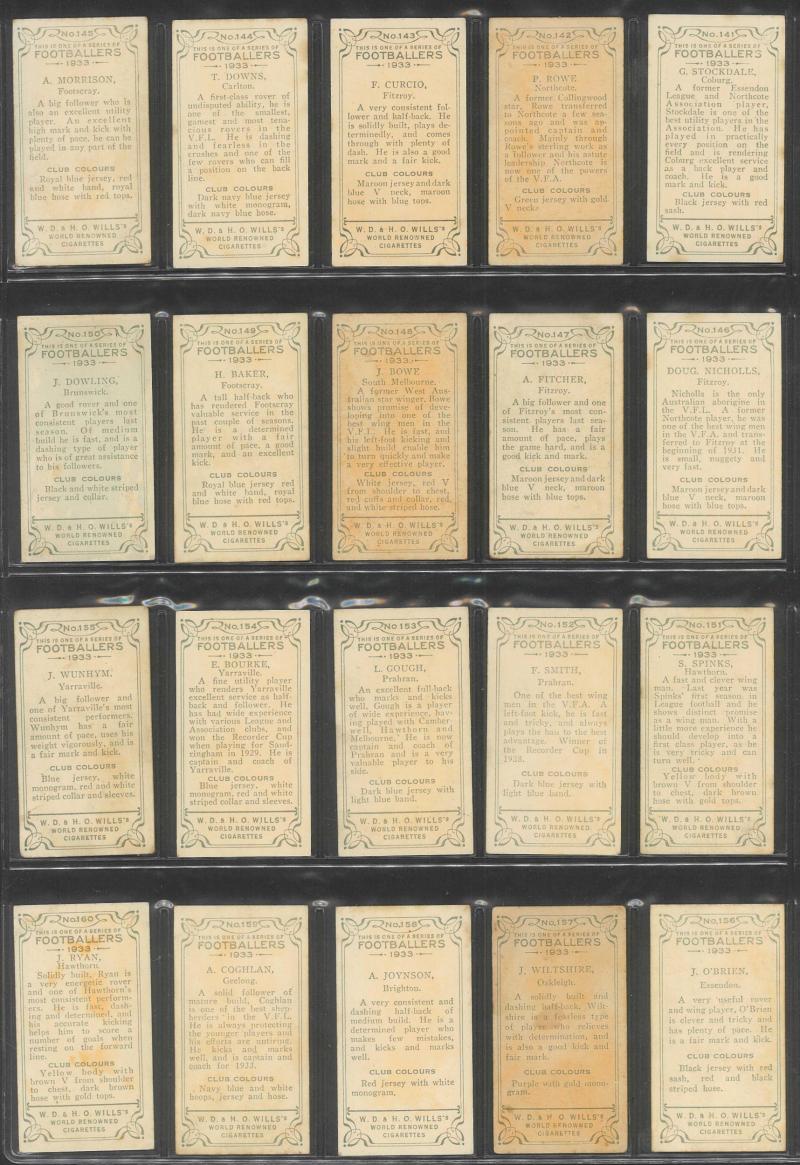 No.145
THIS IS ONE OF A SERIES OF
FOOTBALLERS
1933
A. MORRISON,
Footscray.
A big follower who is
also an excellent utility
player. An excellent
high mark and kick with
plenty of pace, he can be
played in any part of the
field.
CLUB COLOURS
Royal blue jersey, red
and white band, royal
blue hose with red tops.
W. D. & H. O. WILLS'S
WORLD RENOWNED
CIGARETTES
No.144
THIS IS ONE OF A SERIES OF
FOOTBALLERS
1933
T. DOWNS,
Carlton.
A first-class rover of
undisputed ability, he is
one of the smallest,
gamest and most tena-
cious rovers in the
V.F.L. He is dashing
and fearless in the
crushes and one of the
few rovers who can fill
a position on the back
line.
CLUB COLOURS
Dark navy blue jersey
with white monogram,
dark navy blue hose.
W. D. & H. O. WILLS'S
WORLD RENOWNED
CIGARETTES
No.143
THIS IS ONE OF A SERIES OF
FOOTBALLERS
1933
F. CURCIO,
Fitzroy.
A very consistent fol-
lower and half-back. He
is solidly built, plays de-
terminedly, and comes
through with plenty of
dash. He is also a good
mark and a fair kick.
CLUB COLOURS
Maroon jersey and dark
blue V neck, maroon
hose with blue tops.
W. D. & H. O. WILLS'S
WORLD RENOWNED
CIGARETTES
No.142
THIS IS ONE OF A SERIES OF
FOOTBALLERS
1933
P. ROWE
Northcote.
A former Collingwood
star, Rowe transferred
to Northcote a few sea-
sons ago and was ap-
pointed captain and
coach. Mainly through
Rowe's sterling work as
a follower and his astute
leadership Northcote is
now one of the powers
of the V.F.A.
CLUB COLOURS
Green jersey with gold
V neck.
W. D. & H. O. WILLS'S
WORLD RENOWNED
CIGARETTES
No.141
THIS IS ONE OF A SERIES OF
FOOTBALLERS
1933
G. STOCKDALE,
Coburg.
A former Essendon
League and Northcote
Association player,
Stockdale is one of the
best utility players in the
Association. He has
played in practically
every position on the
field and is rendering
Coburg excellent service
as a back player and
coach. He is a good
mark and kick.
CLUB COLOURS
Black jersey with red
sash.
W. D. & H. O. WILLS'S
WORLD RENOWNED
CIGARETTES
No.150
THIS IS ONE OF A SERIES OF
FOOTBALLERS
1933
J. DOWLING,
Brunswick.
A good rover and one
of Brunswick's most
consistent players last
season. Of medium
build he is fast, and is a
dashing type of player
who is of great assistance
to his followers.
CLUB COLOURS
Black and white striped
jersey and collar.
W. D. & H. O. WILLS'S
WORLD RENOWNED
CIGARETTES
No.149
THIS IS ONE OF A SERIES OF
FOOTBALLERS
1933
H. BAKER,
Footscray.
A tall half-back who
has rendered Footscray
valuable service in the
past couple of seasons.
He is a determined
player with a fair
amount of pace, a good
mark, and an excellent
kick.
CLUB COLOURS
Royal blue jersey red
and white band, royal
blue hose with red tops.
W. D. & H. O. WILLS'S
WORLD RENOWNED
CIGARETTES
No.148
THIS IS ONE OF A SERIES OF
FOOTBALLERS
1933
J. BOWE
South Melbourne.
A former West Aus-
tralian star winger, Bowe
shows promise of deve-
loping into one of the
best wing men in the
V.F.L. He is fast, and
his left-foot kicking and
slight build enable him
to turn quickly and make
a very effective player.
CLUB COLOURS
White jersey, red V
from shoulder to chest,
red cuffs and collar, red,
and white striped hose.
W. D. & H. O. WILLS'S
WORLD RENOWNED
CIGARETTES
No.147
THIS IS ONE OF A SERIES OF
FOOTBALLERS
1933
A. FITCHER,
Fitzroy.
A big follower and one
of Fitzroy's most con-
sistent players last sea-
son. He has a fair
amount of pace, plays
the game hard, and is a
good kick and mark.
CLUB COLOURS
Maroon jersey and dark
blue V neck, maroon
hose with blue tops.
W. D. & H. O. WILLS'S
WORLD RENOWNED
CIGARETTES
No.146
THIS IS ONE OF A SERIES OF
FOOTBALLERS
1933
DOUG. NICHOLLS,
Fitzroy.
Nicholls is the only
Australian aborigine in
the V.F.L. A former
Northcote player, he was
one of the best wing men
in the V.F.A. and trans-
ferred to Fitzroy at the
beginning of 1931. He
is small, nuggety and
very fast.
CLUB COLOURS
Maroon jersey and dark
blue V neck, maroon
hose with blue tops.
W. D. & H. O. WILLS'S
WORLD RENOWNED
CIGARETTES
No.155
THIS IS ONE OF A SERIES OF
FOOTBALLERS
1933
J. WUNHYM.
Yarraville.
A big follower and
one of Yarraville's most
consistent performers.
Wunhym has a fair
amount of pace, uses his
weight vigorously, and is
a fair mark and kick.
CLUB COLOURS
Blue jersey, white
monogram, red and white
striped collar and sleeves.
W. D. & H. O. WILLS'S
WORLD RENOWNED
CIGARETTES
No.154
THIS IS ONE OF A SERIES OF
FOOTBALLERS
1933
E. BOURKE,
Yarraville.
A fine utility player
who renders Yarraville
excellent service as half-
back and follower. He
has had wide experience
with various League and
Association clubs, and
won the Recorder Cup
when playing for Sand-
ringham in 1929. He is
captain and coach of
Yarraville.
CLUB COLOURS
Blue jersey, white
monogram, red and white
striped collar and sleeves.
W. D. & H. O. WILLS'S
WORLD RENOWNED
CIGARETTES
No.153
THIS IS ONE OF A SERIES OF
FOOTBALLERS
1933
L. GOUGH,
Prahran.
An excellent full-back
who marks and kicks
well, Gough is a player
of wide experience, hav-
ing played with Camber-
well, Hawthorn and
Melbourne. He is now
captain and coach of
Prahran and is a very
valuable player to his
side.
CLUB COLOURS
Dark blue jersey with
light blue band.
W. D. & H. O. WILLS'S
WORLD RENOWNED
CIGARETTES
No.152
THIS IS ONE OF A SERIES OF
FOOTBALLERS
1933
F. SMITH,
Prahran.
One of the best wing
men in the V.F.A. A
left-foot kick, he is fast
and tricky, and always
plays the ball to the best
advantage. Winner of
the Recorder Cup in
CLUB COLOURS
Dark blue jersey with
light blue band.
W. D. & H. O. WILLS'S
WORLD RENOWNED
CIGARETTES
No.151
THIS IS ONE OF A SERIES OF
FOOTBALLERS
1933
S. SPINKS,
Hawthorn.
A fast and clever wing
man. Last year was
Spinks' first season in
League football and he
shows distinct promise
as a wing man. With a
little more experience he
should develop into a
first class player, as he
is very tricky and can
turn well.
CLUB COLOURS
Yellow body with
brown V from shoulder
to chest, dark brown
hose with gold tops.
W. D. & H. O. WILLS'S
WORLD RENOWNED
CIGARETTES
No.160
THIS IS ONE OF A SERIES OF
FOOTBALLERS
1933
J. RYAN,
Hawthorn.
Solidly built, Ryan is
a very energetic rover
and one of Hawthorn's
most consistent perform-
ers. He is fast, dash-
ing and determined, and
his accurate kicking
helps him to score a
number of goals when
resting on the forward
line.
CLUB COLOURS
Yellow body with
brown V from shoulder
to chest, dark brown
hose with gold tops.
W. D. & H. O. WILLS'S
WORLD RENOWNED
CIGARETTES
No.159
THIS IS ONE OF A SERIES OF
FOOTBALLERS
1933
A. COGHLAN,
Geelong.
A solid follower of
mature build, Coghlan
is one of the best shep-
herders in the V.F.L.
He is always protecting
the younger players and
his efforts are untiring.
He kicks and marks
well, and is captain and
coach for 1933.
CLUB COLOURS
Navy blue and white
hoops, jersey and hose.
W. D. & H. O. WILLS'S
WORLD RENOWNED
CIGARETTES
No.158
THIS IS ONE OF A SERIES OF
FOOTBALLERS
1933
A. JOYNSON,
Brighton.
A very consistent and
dashing half-back of
medium build. He is a
determined player who
makes few mistakes,
and kicks and marks
well.
CLUB COLOURS
Red jersey with white
monogram.
W. D. & H. O. WILLS'S
WORLD RENOWNED
CIGARETTES
No.157
THIS IS ONE OF A SERIES OF
FOOTBALLERS
1933
J. WILTSHIRE,
Oakleigh.
A solidly built and
dashing half-back, Wilt-
shire is a fearless type
of player who relieves
with determination, and
is also a good kick and
fair mark.
CLUB COLOURS
Purple with gold mono-
gram.
W. D. & H. O. WILLS'S
WORLD RENOWNED
CIGARETTES
No.156
THIS IS ONE OF A SERIES OF
FOOTBALLERS
1933
J. O'BRIEN,
Essendon.
A very useful rover
and wing player, O'Brien
is clever and tricky and
has plenty of pace. He
is a fair mark and kick.
CLUB COLOURS
Black jersey with red
sash, red and black
striped hose.
W. D. & H. O. WILLS'S
WORLD RENOWNED
CIGARETTES